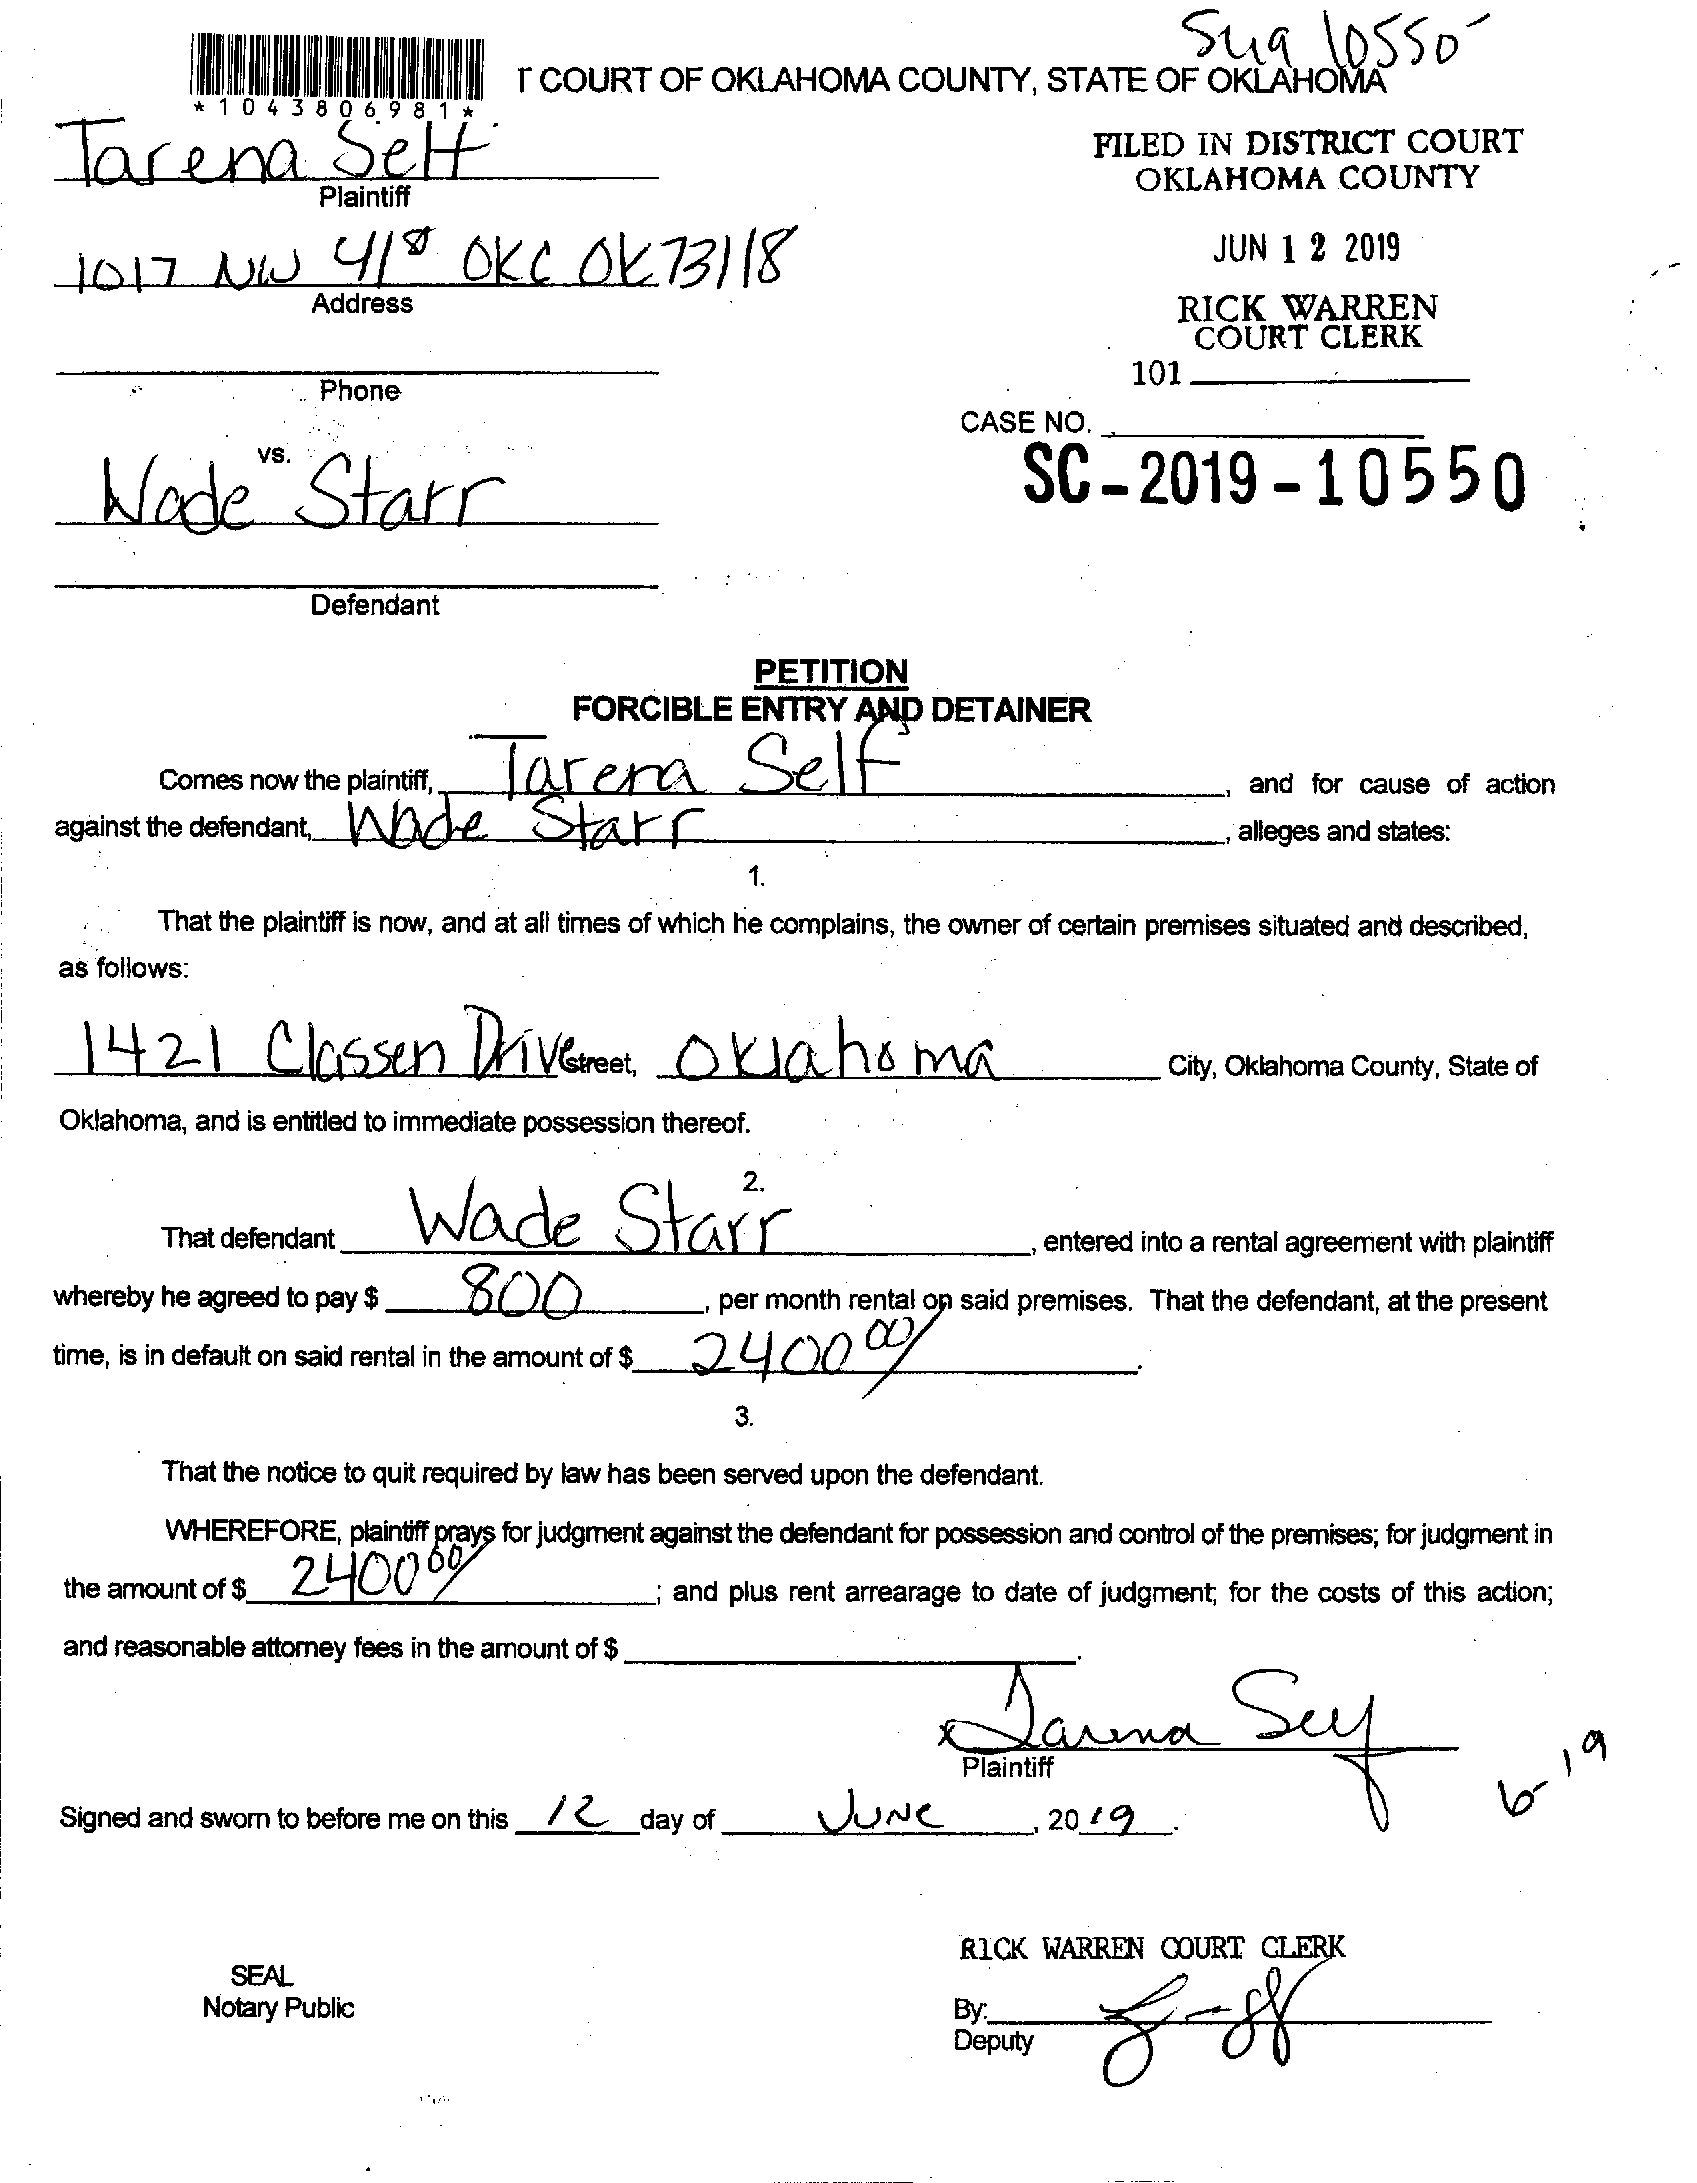 10550
T COURT OF OKLAHOMA COUNTY, STATE OF OKLAHOMA
*1043806981*
Tarena Self
Plaintiff
FILED IN DISTRICT COURT
OKLAHOMA COUNTY
JUN 12 2019
1017 NW 41st OKC OK 73118
Address
RICK WARREN
COURT CLERK
101
Phone
CASE NO.
SC-2019-10550
vs.
Wade Starr
Defendant
PETITION
FORCIBLE ENTRY AND DETAINER
Comes now the plaintiff, Tarena Self, and for cause of action
against the defendant, Wade Starr, alleges and states:
1.
That the plaintiff is now, and at all times of which he complains, the owner of certain premises situated and described,
as follows:
1421 Classen Drive street, Oklahoma City, Oklahoma County, State of
Oklahoma, and is entitled to immediate possession thereof.
2.
That defendant Wade Starr, entered into a rental agreement with plaintiff
whereby he agreed to pay $ 800, per month rental on said premises. That the defendant, at the present
time, is in default on said rental in the amount of $ 2400 00/.
3.
That the notice to quit required by law has been served upon the defendant.
WHEREFORE, plaintiff prays for judgment against the defendant for possession and control of the premises; for judgment in
the amount of $ 2400 00/; and plus rent arrearage to date of judgment; for the costs of this action;
and reasonable attorney fees in the amount of $ .
x Tarena Self
Plaintiff
6-19
Signed and sworn to before me on this 12 day of JUNE, 2019.
RICK WARREN COURT CLERK
SEAL
Notary Public
By:
Deputy